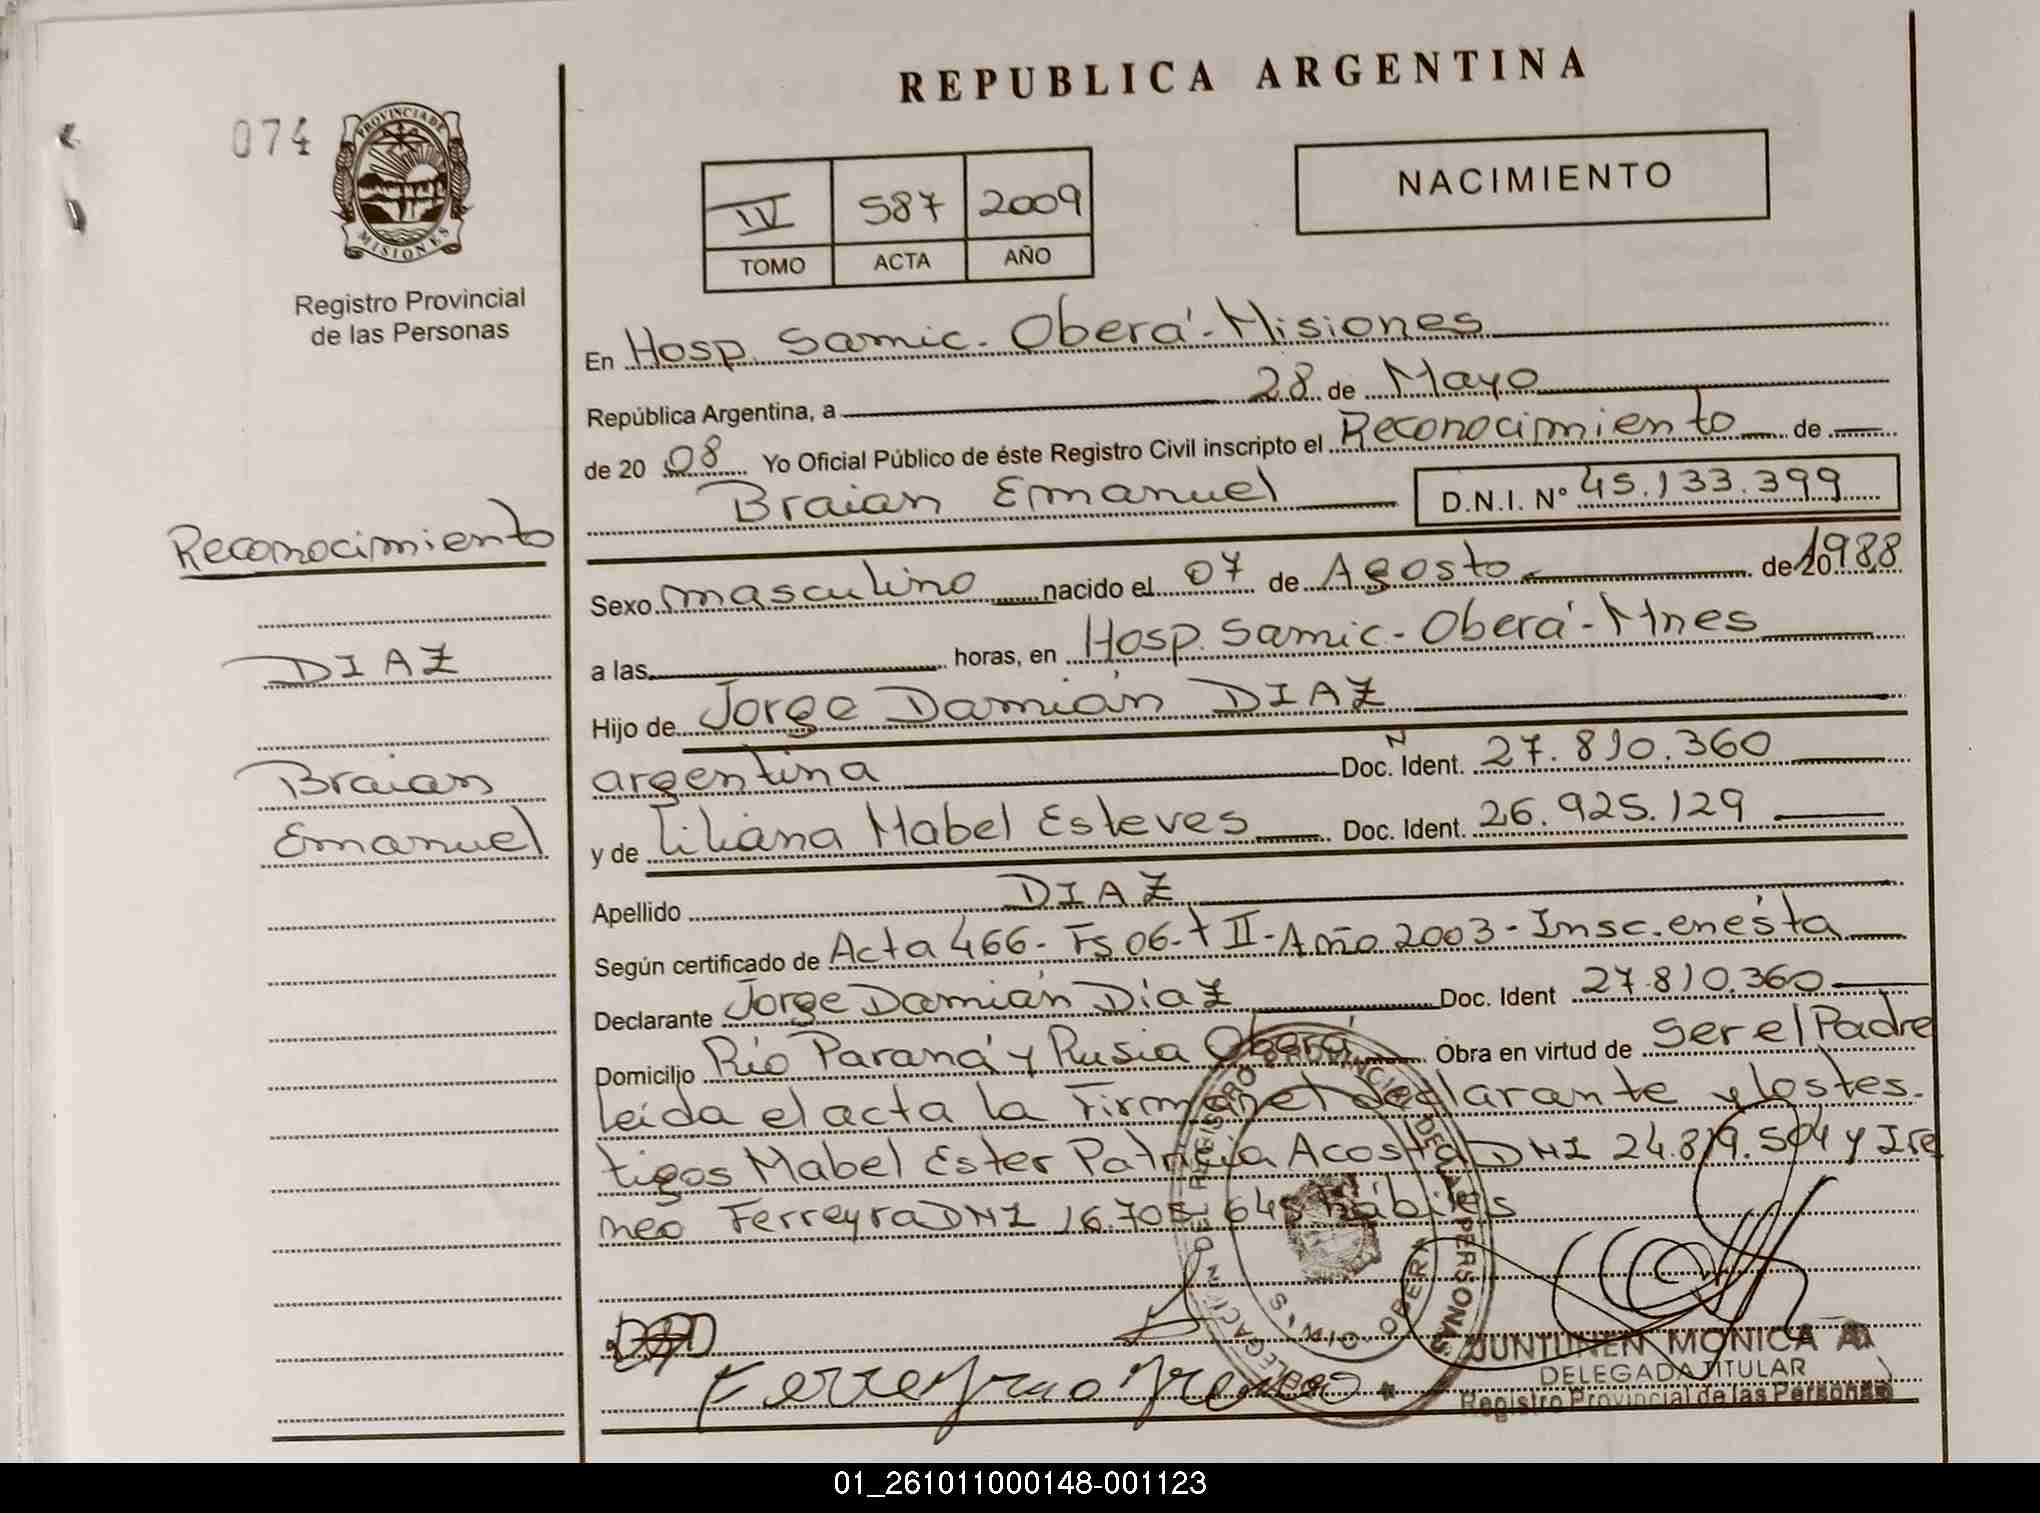 REPUBLICA ARGENTINA
074
PROVINCIA DE
MISIONES
Registro Provincial
de las Personas
IV 587 2009
TOMO ACTA AÑO
NACIMIENTO
En Hosp. Samic. Oberá - Misiones
República Argentina, a 28 de Mayo
de 20 08 Yo Oficial Público de éste Registro Civil inscripto el Reconocimiento de
Braian Emanuel D.N.I. N° 45.133.399
Reconocimiento
DIAZ
Braian
Emanuel
Sexo masculino nacido el 07 de Agosto de 1988
a las horas, en Hosp. Samic - Oberá - Mnes
Hijo de Jorge Damián DIAZ
argentina Doc. Ident. 27.810.360
y de Liliana Mabel Esteves Doc. Ident. 26.925.129
Apellido DIAZ
Según certificado de Acta 466 - Fs 06 - t II - Año 2003 - Insc. en ésta
Declarante Jorge Damián Diaz Doc. Ident 27.810.360
Domicilio Río Paraná y Rusia Oberá Obra en virtud de ser el Padre
leída el acta la Firman el declarante y los tes.
tigos Mabel Ester Patricia Acosta DNI 24.819.504 y Ire
neo Ferreyra DNI 16.705.645 hábiles
Ferreyra Ireneo
JUNTUNEN MONICA A.
DELEGADA TITULAR
Registro Provincial de las Personas
01_261011000148-001123